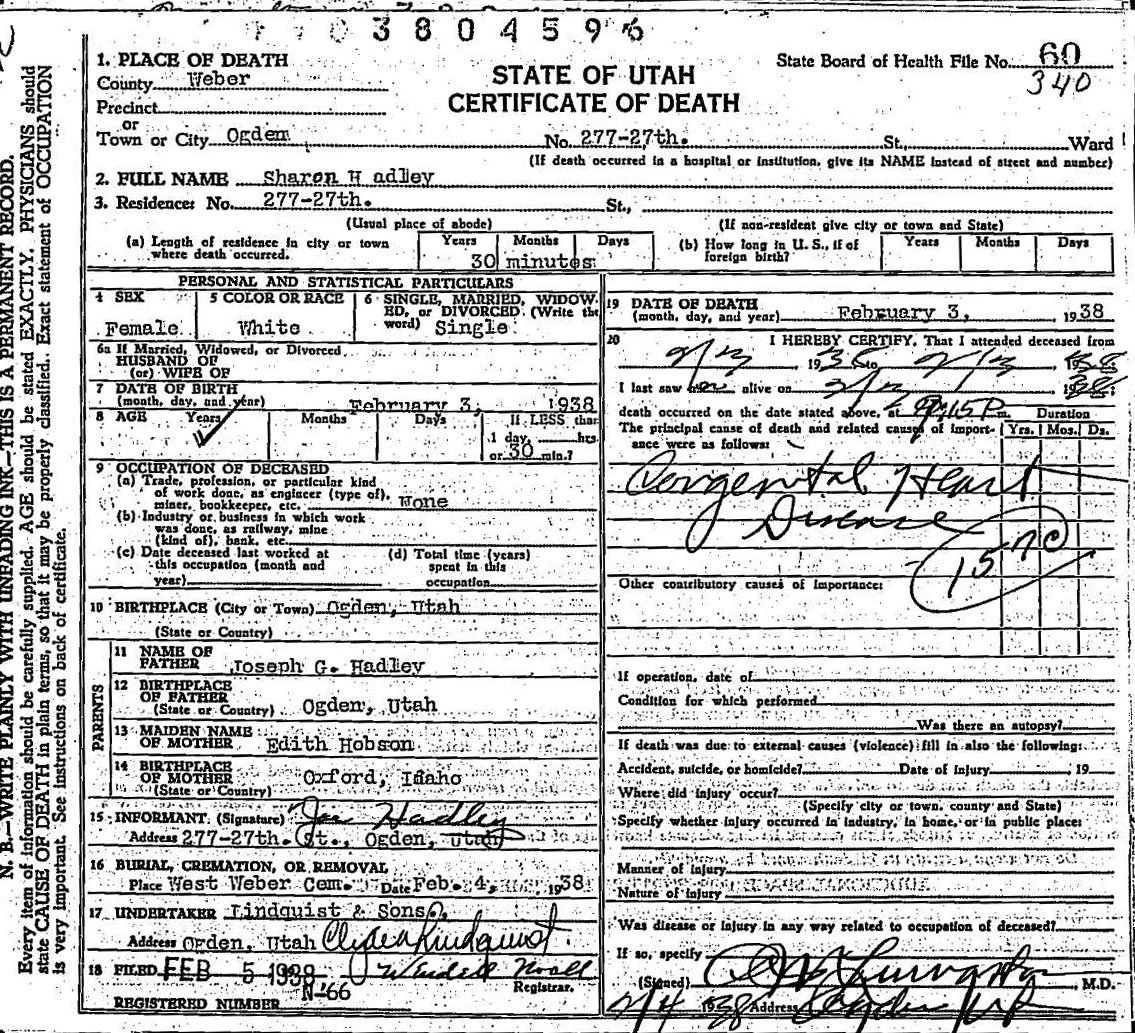 3804596
1. PLACE OF DEATH
County Weber
Precinct
or
Town or City Ogden
STATE OF UTAH
CERTIFICATE OF DEATH
State Board of Health File No. 60
340
No. 277-27th. St., Ward
(If death occurred in a hospital or institution, give its NAME instead of street and number)
2. FULL NAME Sharon H adley
3. Residence: No. 277-27th. St.,
(Usual place of abode) (If non-resident give city or town and State)
(a) Length of residence in city or town where death occurred. Years Months Days
30 minutes
(b) How long in U. S., if of foreign birth? Years Months Days
PERSONAL AND STATISTICAL PARTICULARS
4 SEX 5 COLOR OR RACE 6 SINGLE, MARRIED, WIDOW-
ED, or DIVORCED (Write the
word) Single
Female White
6a If Married, Widowed, or Divorced
HUSBAND OF
(or) WIFE OF
7 DATE OF BIRTH
(month, day, and year) February 3, 1938
8 AGE Years Months Days If LESS than
1 day, hrs.
or 30 min.?
9 OCCUPATION OF DECEASED
(a) Trade, profession, or particular kind
of work done, as engineer (type of),
miner, bookkeeper, etc. None
(b) Industry or business in which work
was done, as railway, mine
(kind of), bank, etc.
(c) Date deceased last worked at
this occupation (month and
year)
(d) Total time (years)
spent in this
occupation
10 BIRTHPLACE (City or Town) Ogden, Utah
(State or Country)
PARENTS
11 NAME OF
FATHER Joseph G. Hadley
12 BIRTHPLACE
OF FATHER
(State or Country) Ogden, Utah
13 MAIDEN NAME
OF MOTHER Edith Hobson
14 BIRTHPLACE
OF MOTHER
(State or Country) Oxford, Idaho
15 INFORMANT. (Signature) Joe Hadley
Address 277-27th. St., Ogden, Utah
16 BURIAL, CREMATION, OR REMOVAL
Place West Weber Cem. Date Feb. 4, 1938
17 UNDERTAKER Lindquist & Sons
Address Ogden, Utah Clyde Lindquist
18 FILED FEB 5 1938
Registrar.
N-66
REGISTERED NUMBER
19 DATE OF DEATH
(month, day, and year) February 3, 1938
20 I HEREBY CERTIFY, That I attended deceased from
1938 to 1938
I last saw her alive on 1938
death occurred on the date stated above, at 15 P m. Duration
The principal cause of death and related causes of import-
ance were as follows: Yrs. Mos. Ds.
Congenital Heart
Disease
157c
Other contributory causes of importance:
If operation, date of
Condition for which performed
Was there an autopsy?
If death was due to external causes (violence) fill in also the following:
Accident, suicide, or homicide? Date of injury 19
Where did injury occur?
(Specify city or town, county and State)
Specify whether injury occurred in industry, in home, or in public place:
Manner of injury
Nature of injury
Was disease or injury in any way related to occupation of deceased?
If so, specify
(Signed) M.D.
2/4 1938 Address Ogden
N. B.—WRITE PLAINLY WITH UNFADING INK—THIS IS A PERMANENT RECORD.
Every item of information should be carefully supplied. AGE should be stated EXACTLY. PHYSICIANS should
state CAUSE OF DEATH in plain terms, so that it may be properly classified. Exact statement of OCCUPATION
is very important. See instructions on back of certificate.